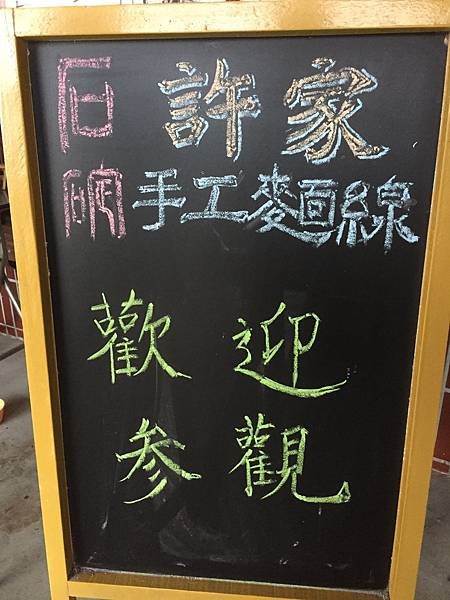 石碉
許家
手工麵線
歡迎
參觀